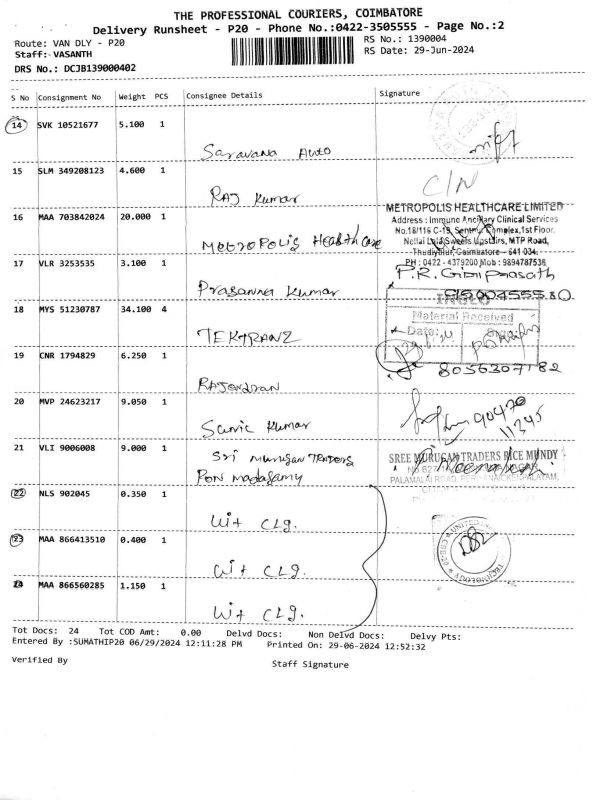 THE PROFESSIONAL COURIERS, COIMBATORE
Delivery Runsheet - P20 - Phone No.:0422-3505555 - Page No.:2
Route: VAN DLY - P20
RS No.: 1390004
Staff: VASANTH
RS Date: 29-Jun-2024
DRS No.: DCJB139000402
S No Consignment No Weight PCS Consignee Details Signature
14 SVK 10521677 5.100 1
Saravana Auto
15 SLM 349208123 4.600 1
C/N
RAJ Kumar
METROPOLIS HEALTHCARE LIMITED
16 MAA 703842024 20.000 1
Address : Immuno Ancillary Clinical Services
No.18/116 C-19, Sentry Complex, 1st Floor.
METROPOLIS Healthcare
Nellai Lala Sweets Upstairs, MTP Road,
Thudiyalur, Coimbatore - 641 034.
17 VLR 3253535 3.100 1
PH : 0422 - 4379200 Mob : 9894787536
Prasanna Kumar
18 MYS 51230787 34.100 4
Material Received
TEKTRANZ
Date:
19 CNR 1794829 6.250 1
8056307182
RAJENDRAN
20 MVP 24623217 9.050 1
90470
11345
Kumar
21 VLI 9006008 9.000 1
Sri Murugan Traders
SREE MURUGAN TRADERS RICE MUNDY
22 NLS 902045 0.350 1
Wit Clg.
23 MAA 866413510 0.400 1
Wit Clg.
24 MAA 866560285 1.150 1
Wit Clg.
Tot Docs: 24 Tot COD Amt: 0.00 Delvd Docs: Non Delvd Docs: Delvy Pts:
Entered By :SUMATHIP20 06/29/2024 12:11:28 PM Printed On: 29-06-2024 12:52:32
Verified By
Staff Signature